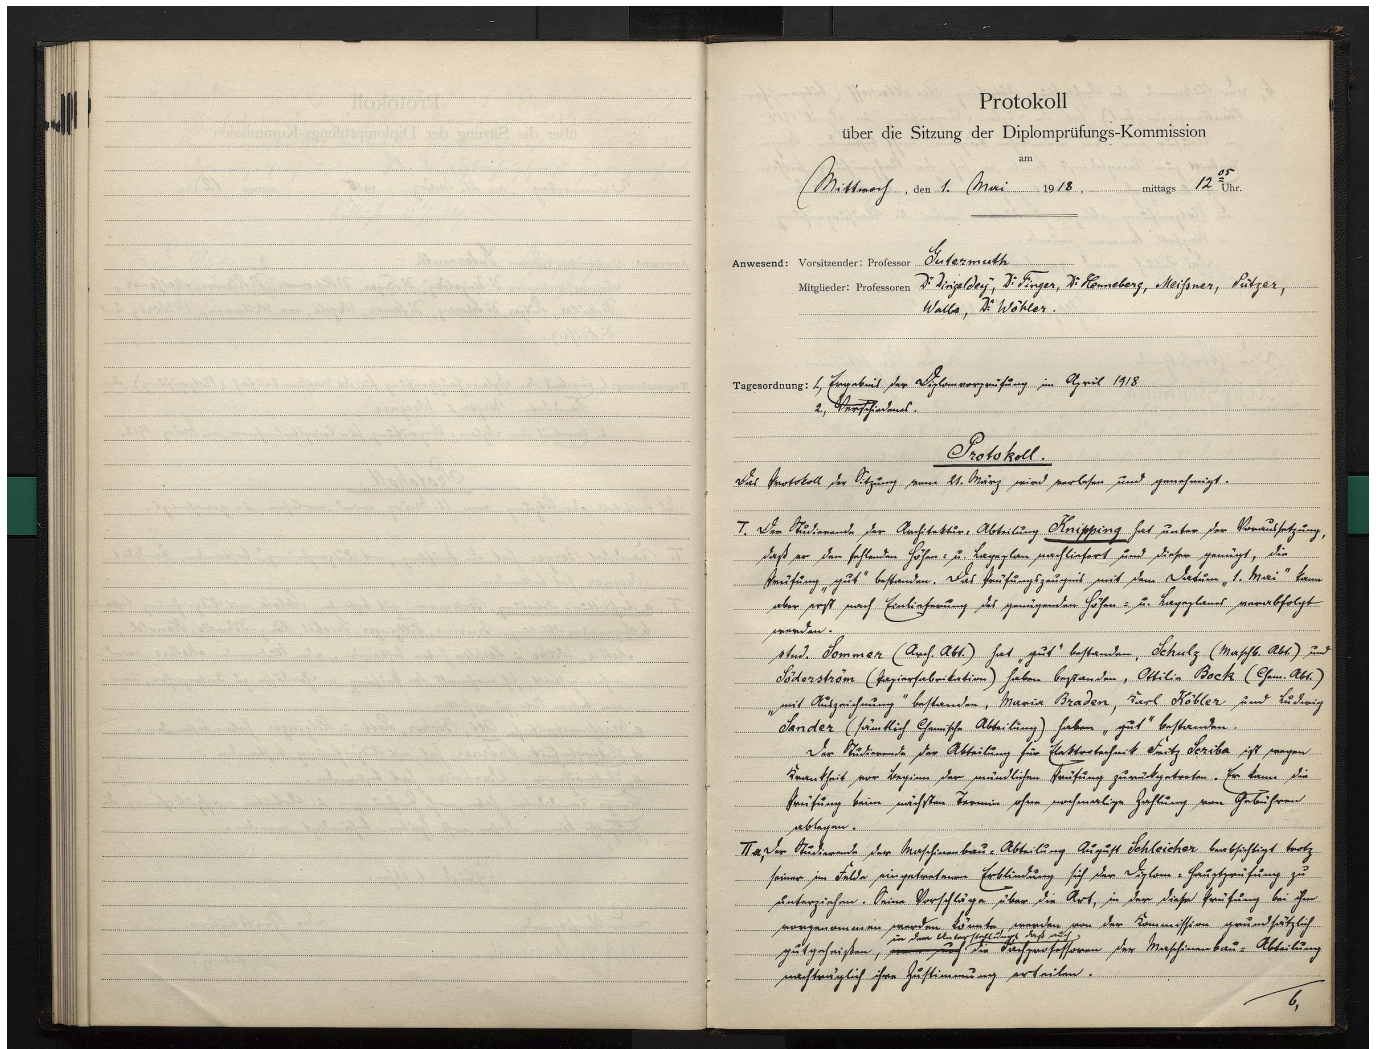 Protokoll
über die Sitzung der Diplomprüfungs-Kommission
am
Mittwoch, den 1. Mai 1918, mittags 12 05 Uhr.
Anwesend: Vorsitzender: Professor Gutermuth
Mitglieder: Professoren Dr Dingeldey, Dr Finger, Dr Henneberg, Meißner, Pützer,
Walbe, Dr Wöhler.
Tagesordnung: 1, Ergebnis der Diplomvorprüfung im April 1918
2, Verschiedenes.
Protokoll.
Das Protokoll der Sitzung vom 21. März wird verlesen und genehmigt.
I. Der Studierende der Architektur-Abteilung Knipping hat unter der Voraussetzung,
daß er den fehlenden Höhen- u. Lageplan nachliefert und dieser genügt, die
Prüfung „gut" bestanden. Das Prüfungszeugnis mit dem Datum „1. Mai" kann
aber erst nach Einlieferung des genügenden Höhen- u. Lageplans verabfolgt
werden.
stud. Sommer (Arch. Abt.) hat „gut" bestanden, Schulz (Maschb. Abt.) und
Söderström (Papierfabrikation) haben bestanden, Ottilie Bock (Chem. Abt.)
„mit Auszeichnung" bestanden, Maria Braden, Karl Köbler und Ludwig
Sander (sämtlich Chemische Abteilung) haben „gut" bestanden.
Der Studierende der Abteilung für Elektrotechnik Fritz Scriba ist wegen
Krankheit vor Beginn der mündlichen Prüfung zurückgetreten. Er kann die
Prüfung beim nächsten Termin ohne nochmalige Zahlung von Gebühren
ablegen.
II a, Der Studierende der Maschinenbau-Abteilung August Schleicher beabsichtigt trotz
seiner im Felde eingetretenen Erblindung sich der Diplom-Hauptprüfung zu
unterziehen. Seine Vorschläge über die Art, in der diese Prüfung bei ihm
vorgenommen werden könnte, werden von der Kommission grundsätzlich
in der Unterstellung, daß auch
gutgeheißen, die Fachprofessoren der Maschinenbau-Abteilung
nachträglich ihre Zustimmung erteilen.
b,